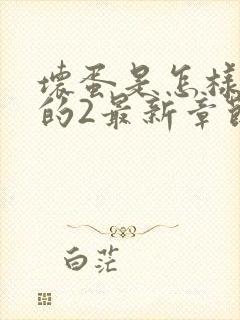 坏蛋是怎样
的2最新章节
白茫